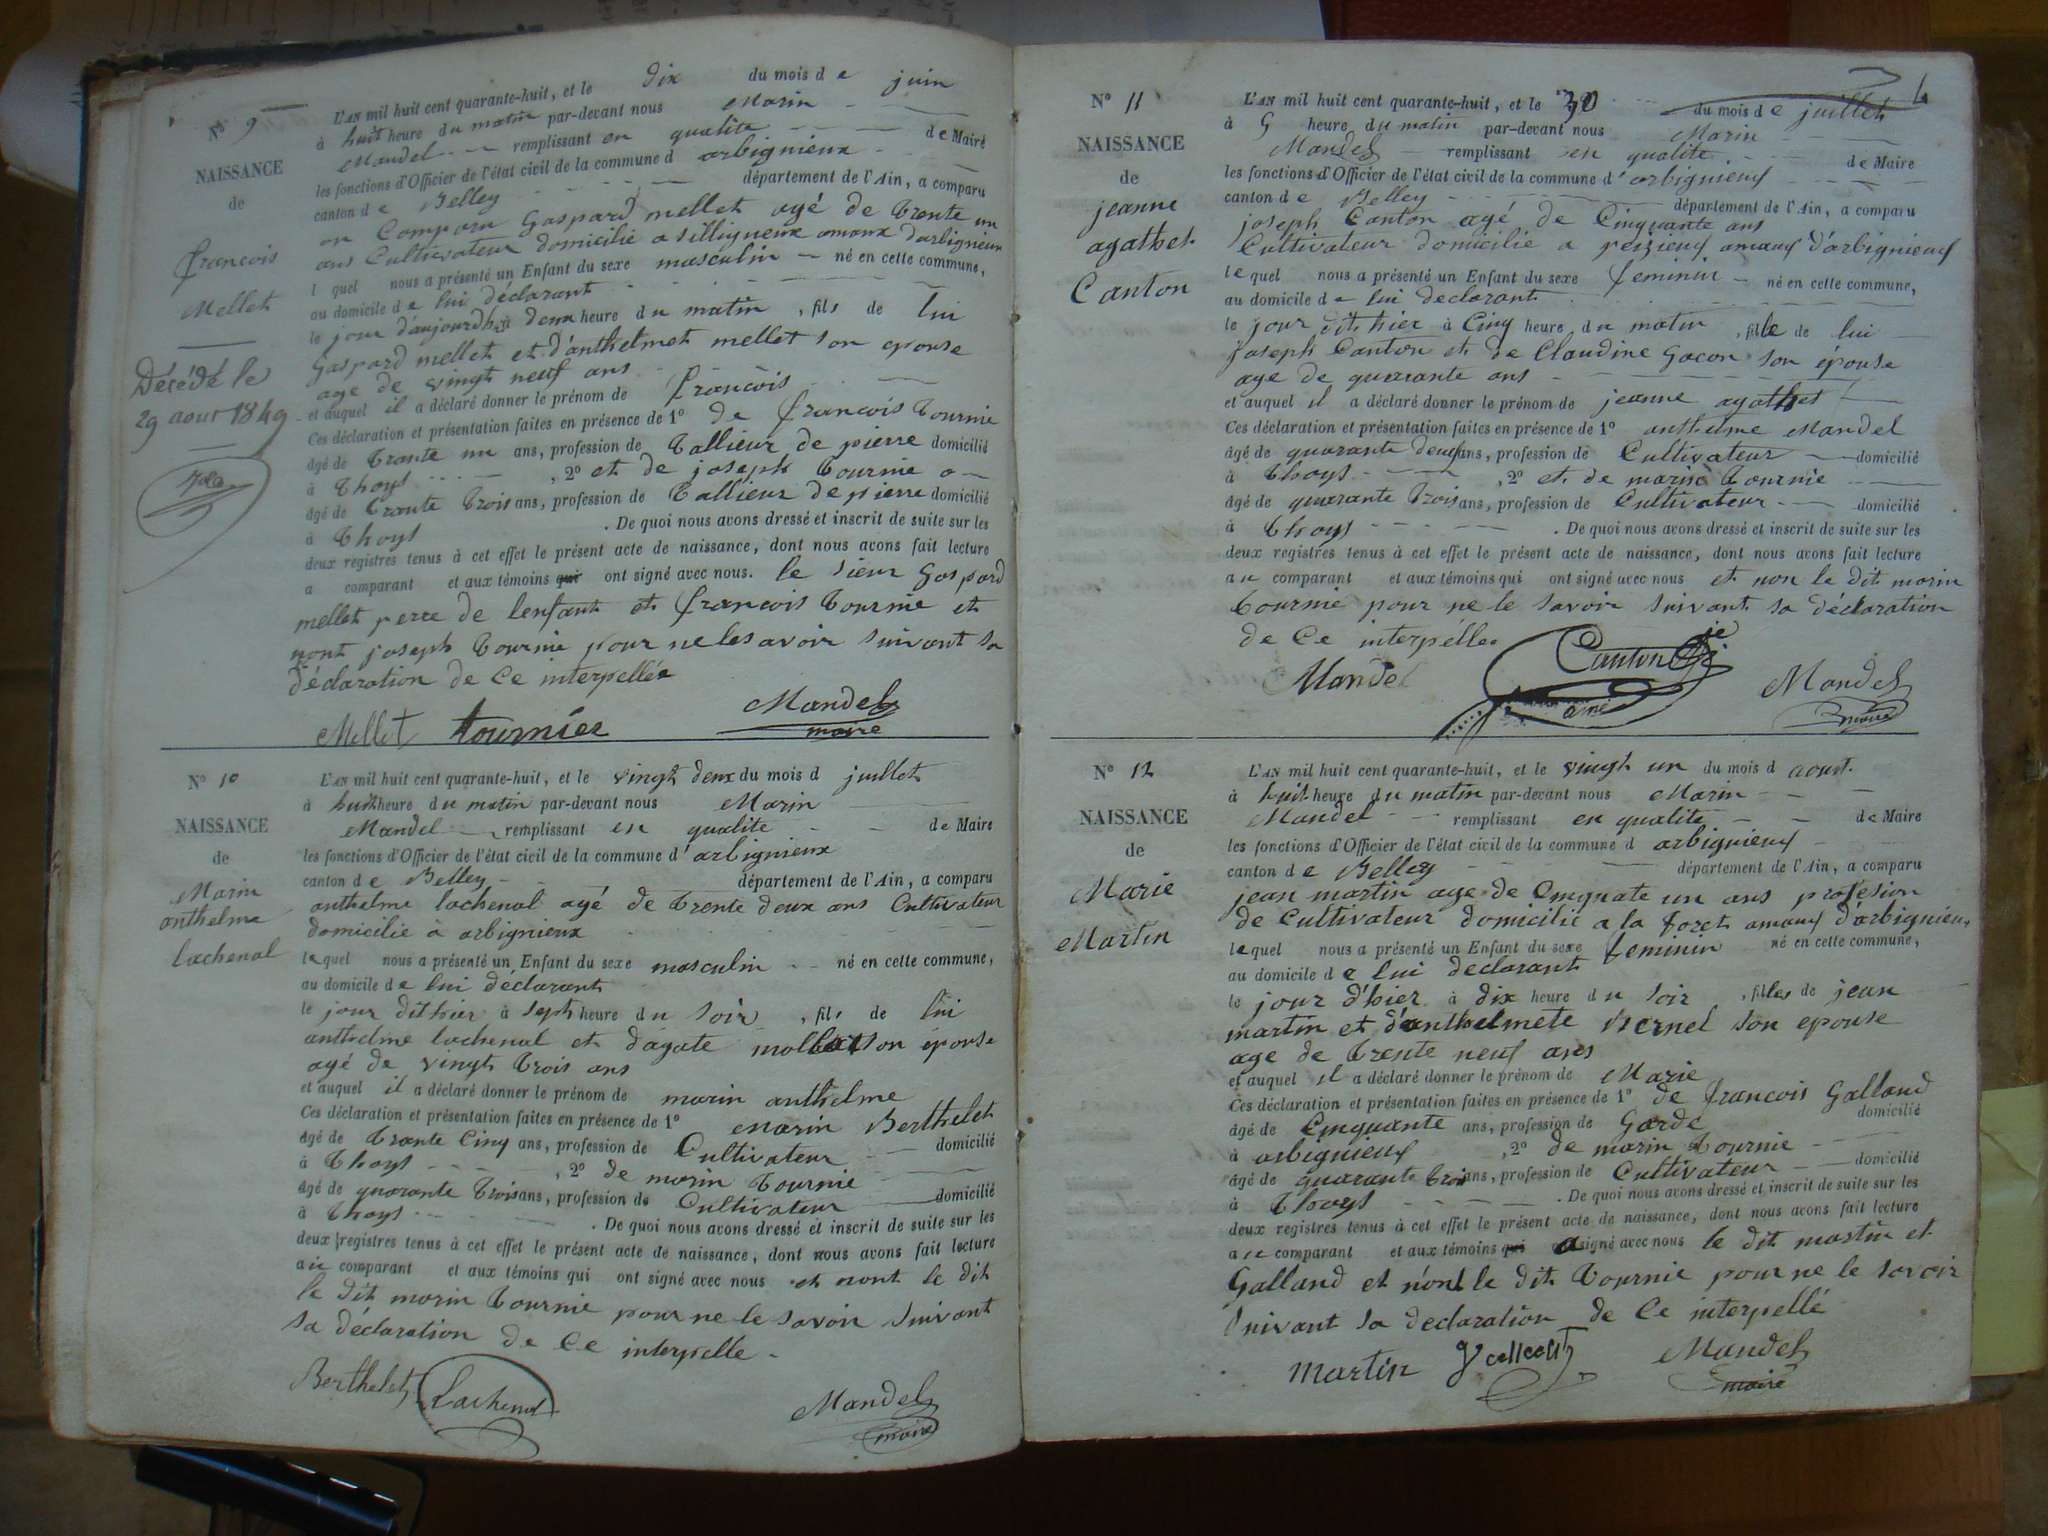 N° 9
NAISSANCE
de
françois
Mellet
Décédé le
29 aout 1849
L'AN mil huit cent quarante-huit, et le dix du mois de juin
à huit heure du matin par-devant nous Marin
Mandel remplissant en qualite de Maire
les fonctions d'Officier de l'état civil de la commune d arbignieux
canton de Belley département de l'Ain, a comparu
on Comparu Gaspard mellet agé de trente un
ans Cultivateur domicilié a Silligneux amaux d'arbignieux
l quel nous a présenté un Enfant du sexe masculin né en cette commune,
au domicile de lui déclarant
le jour d'aujourdhui à deux heure du matin, fils de lui
Gaspard mellet et d'anthelmet mellet son eponse
agé de vingt neuf ans
et auquel il a déclaré donner le prénom de françois
Ces déclaration et présentation faites en présence de 1° de françois tournie
âgé de trante un ans, profession de tallieur de pierre domicilié
à thoys , 2° et de joseph tournie
âgé de trante trois ans, profession de tallieur de pierre domicilié
à thoys . De quoi nous avons dressé et inscrit de suite sur les
deux registres tenus à cet effet le présent acte de naissance, dont nous avons fait lecture
a comparant et aux témoins qui ont signé avec nous. le sieur Gaspard
mellet perre de lenfant et françois tournie et
nont joseph tournie pour ne le savoir suivant sa
déclaration de Ce interpellée
Mellet tournier Mandel
maire
N° 10
NAISSANCE
de
Marin
anthelme
lachenal
L'AN mil huit cent quarante-huit, et le vingt deux du mois d juillet
à huit heure du matin par-devant nous Marin
Mandel remplissant en qualite de Maire
les fonctions d'Officier de l'état civil de la commune d' arbignieux
canton de Belley département de l'Ain, a comparu
anthelme lachenal agé de trente deux ans Cultivateur
domicilié à arbignieux
lequel nous a présenté un Enfant du sexe masculin né en cette commune,
au domicile de lui déclarant
le jour dit hier à sept heure du soir, fils de lui
anthelme lachenal et d'agate son éponse
agé de vingt trois ans
et auquel il a déclaré donner le prénom de marin anthelme
Ces déclaration et présentation faites en présence de 1° Marin Berthelet
âgé de trante Cinq ans, profession de Cultivateur domicilié
à thoys , 2° de marin tournie
âgé de quarante trois ans, profession de Cultivateur domicilié
à thoys . De quoi nous avons dressé et inscrit de suite sur les
deux registres tenus à cet effet le présent acte de naissance, dont nous avons fait lecture
au comparant et aux témoins qui ont signé avec nous et nont le dit
le dit marin tournie pour ne le savoir suivant
sa déclaration de Ce interpelle
Berthelet Lachenal Mandel
maire
N° 11
NAISSANCE
de
jeanne
agathet
Canton
L'AN mil huit cent quarante-huit, et le 30 du mois de juillet
à 9 heure du matin par-devant nous Marin
Mandel remplissant en qualite de Maire
les fonctions d'Officier de l'état civil de la commune d' arbignieux
canton de Belley département de l'Ain, a comparu
joseph Canton agé de Cinquante ans
Cultivateur domicilié a peizieux amaux d'arbignieux
lequel nous a présenté un Enfant du sexe feminin né en cette commune,
au domicile de lui declarant
le jour dit hier à Cinq heure du matin, fille de lui
joseph Canton et de Claudine Gacon son épouse
age de quarante ans
et auquel il a déclaré donner le prénom de jeanne agathet
Ces déclaration et présentation faites en présence de 1° anthelme Mandel
âgé de quarante deux ans, profession de Cultivateur domicilié
à thoys , 2° et de marin tournie
âgé de quarante trois ans, profession de Cultivateur domicilié
à thoys . De quoi nous avons dressé et inscrit de suite sur les
deux registres tenus à cet effet le présent acte de naissance, dont nous avons fait lecture
au comparant et aux témoins qui ont signé avec nous et non le dit marin
tournie pour ne le savoir suivant sa déclaration
de Ce interpéllé
Mandel Canton Mandel
ainé maire
N° 12
NAISSANCE
de
Marie
Martin
L'AN mil huit cent quarante-huit, et le vingt un du mois d aout
à huit heure du matin par-devant nous Marin
Mandel remplissant en qualite de Maire
les fonctions d'Officier de l'état civil de la commune d arbignieux
canton de Belley département de l'Ain, a comparu
jean martin age de Cinquate un ans profesion
de Cultivateur domicilié a la foret amaux d'arbignieux
lequel nous a présenté un Enfant du sexe feminin né en cette commune,
au domicile de lui declarant
le jour d'hier à dix heure du soir, filles de jean
martin et d'anthelmete Bernel son eponse
age de trente neuf ans
et auquel il a déclaré donner le prénom de Marie
Ces déclaration et présentation faites en présence de 1° de françois Galland
âgé de Cinquante ans, profession de Garde domicilié
à arbignieux , 2° de marin tournie
âgé de quarante trois ans, profession de Cultivateur domicilié
à thoys . De quoi nous avons dressé et inscrit de suite sur les
deux registres tenus à cet effet le présent acte de naissance, dont nous avons fait lecture
au comparant et aux témoins qui a signé avec nous le dit martin et
Galland et n'ont le dit tournie pour ne le savoir
suivant sa declaration de Ce interpellé
martin Mandel
maire